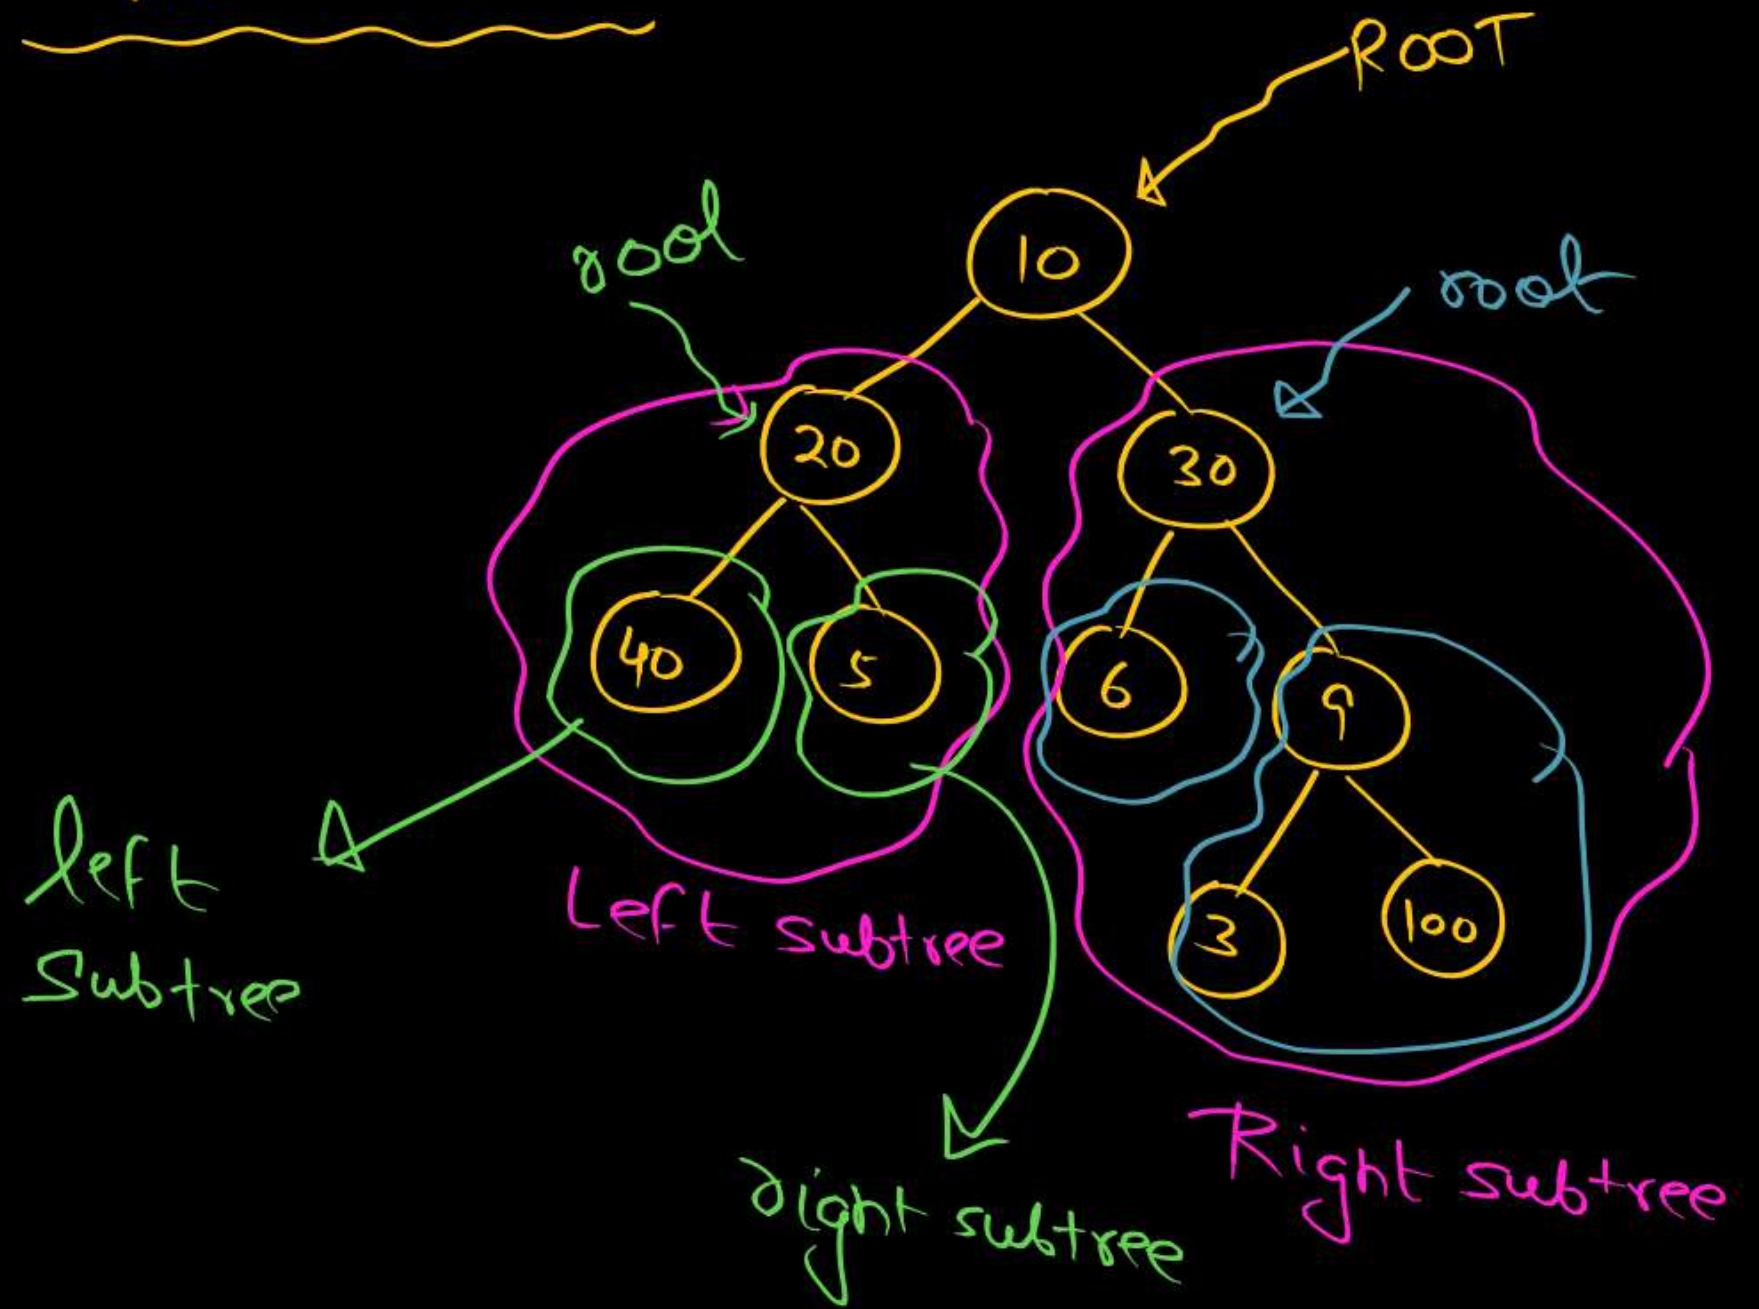 ROOT
root
10
root
20
30
40
5
6
9
3
100
left
Subtree
Left subtree
right subtree
Right subtree